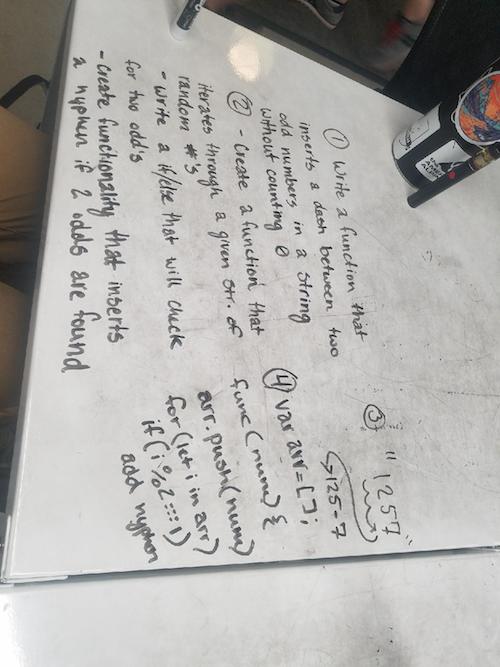 ① Write a function that
inserts a dash between two
odd numbers in a string
without counting 0
② - Create a function that
iterates through a given str. of
random #'s
- Write a if/else that will check
for two odd's
- Create functionality that inserts
a hyphen if 2 odds are found
③ "1257"
↳125-7
④ var arr = [];
func(nums) {
arr.push(nums)
for (let i in arr)
if (i % 2 === 1)
add hyphen